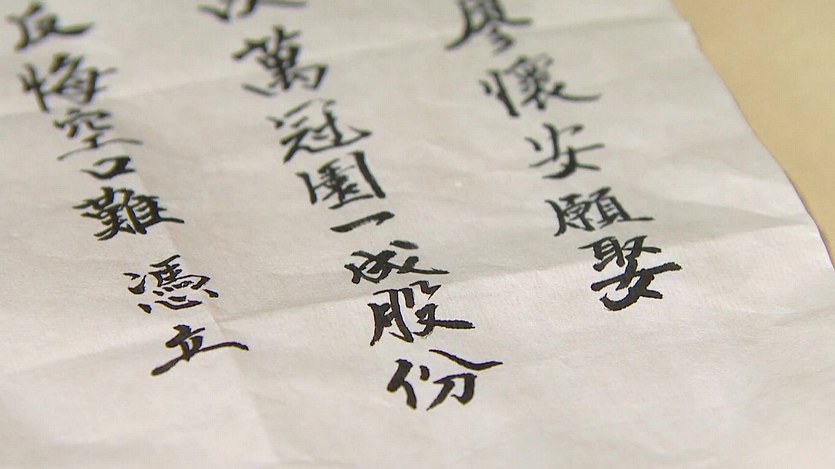 廖懷安願娶
萬冠園一成股份
反悔空口難憑立